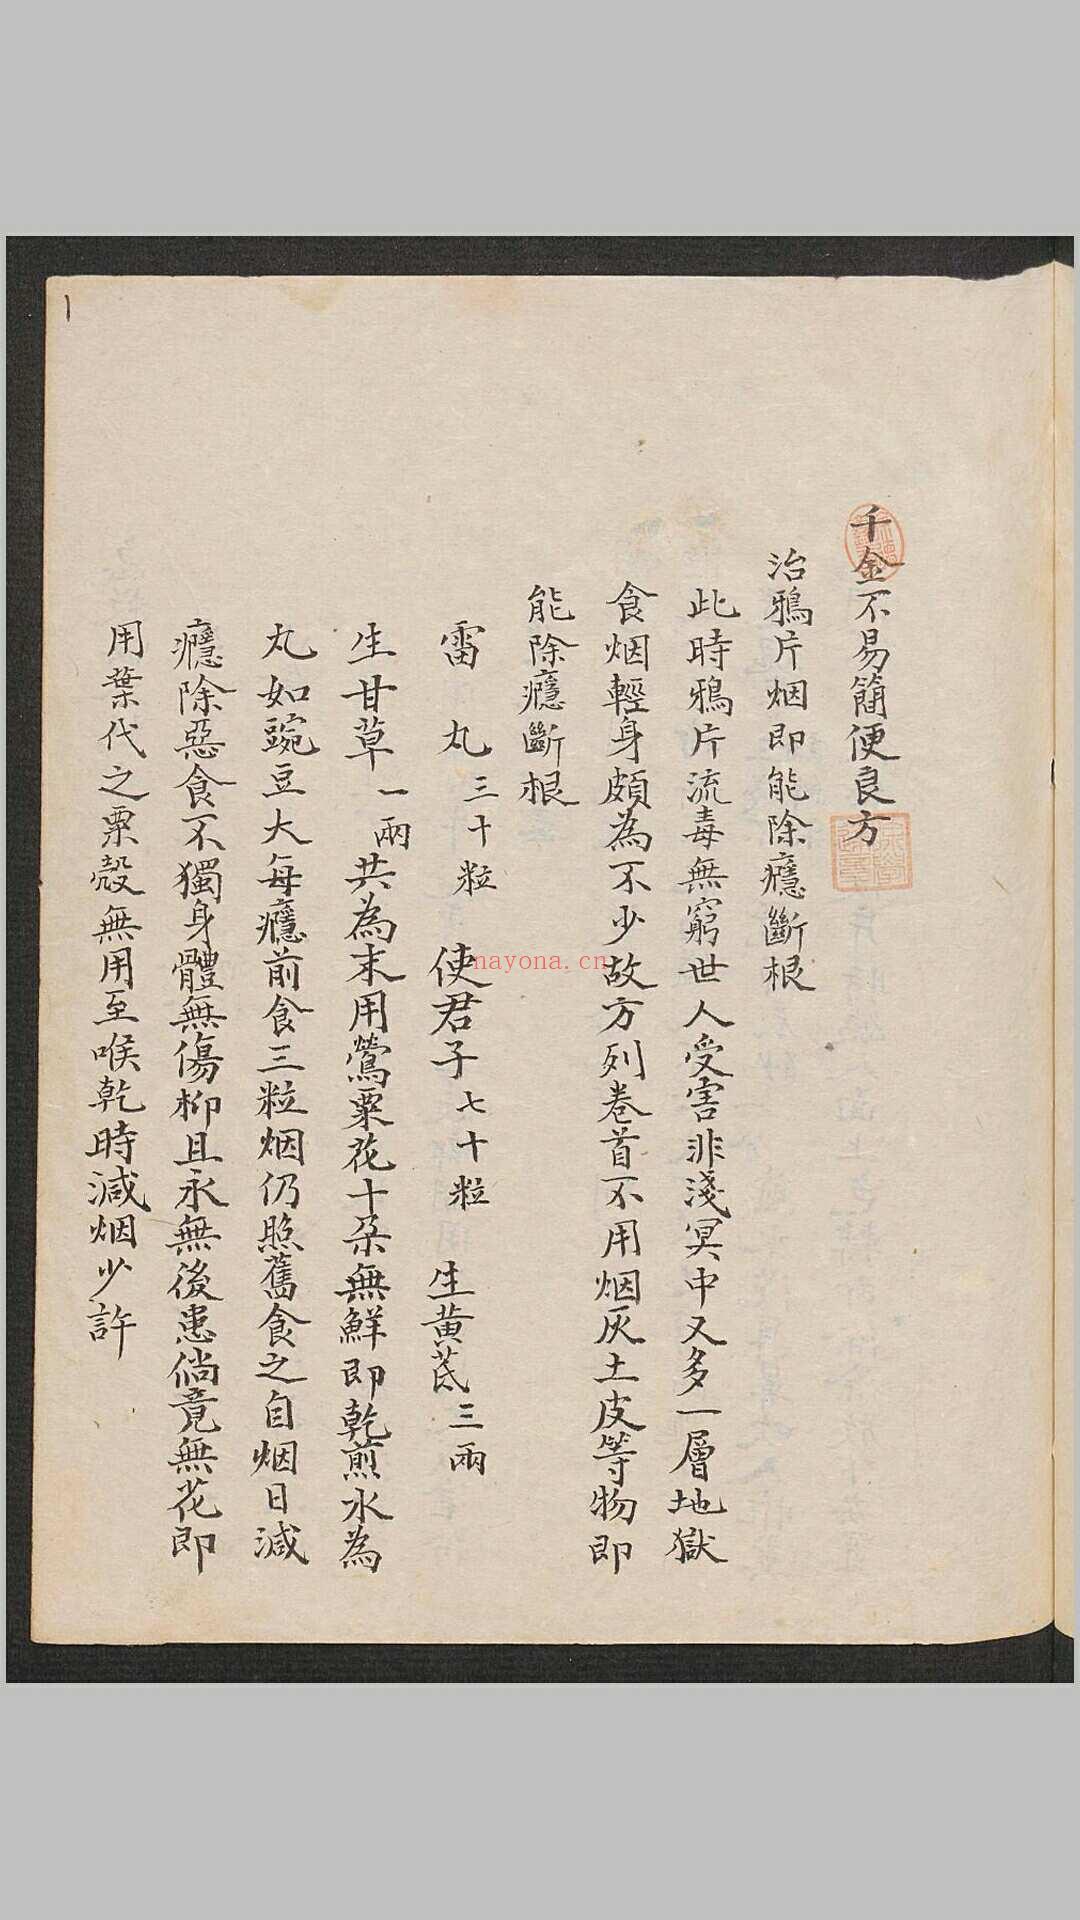 千金不易簡便良方
治鴉片烟即能除癮斷根
此時鴉片流毒無窮世人受害非淺冥中又多一層地獄
食烟輕身頗為不少故方列卷首不用烟灰土皮等物即
能除癮斷根
雷丸三十粒 使君子七十粒 生黄芪三兩
生甘草一兩共為末用鶯粟花十朶無鮮即乾煎水為
丸如豌豆大每癮前食三粒烟仍照舊食之自烟日減
癮除惡食不獨身體無傷柳且永無後患倘竟無花即
用葉代之粟殼無用至喉乾時減烟少許
1
nayona.cn